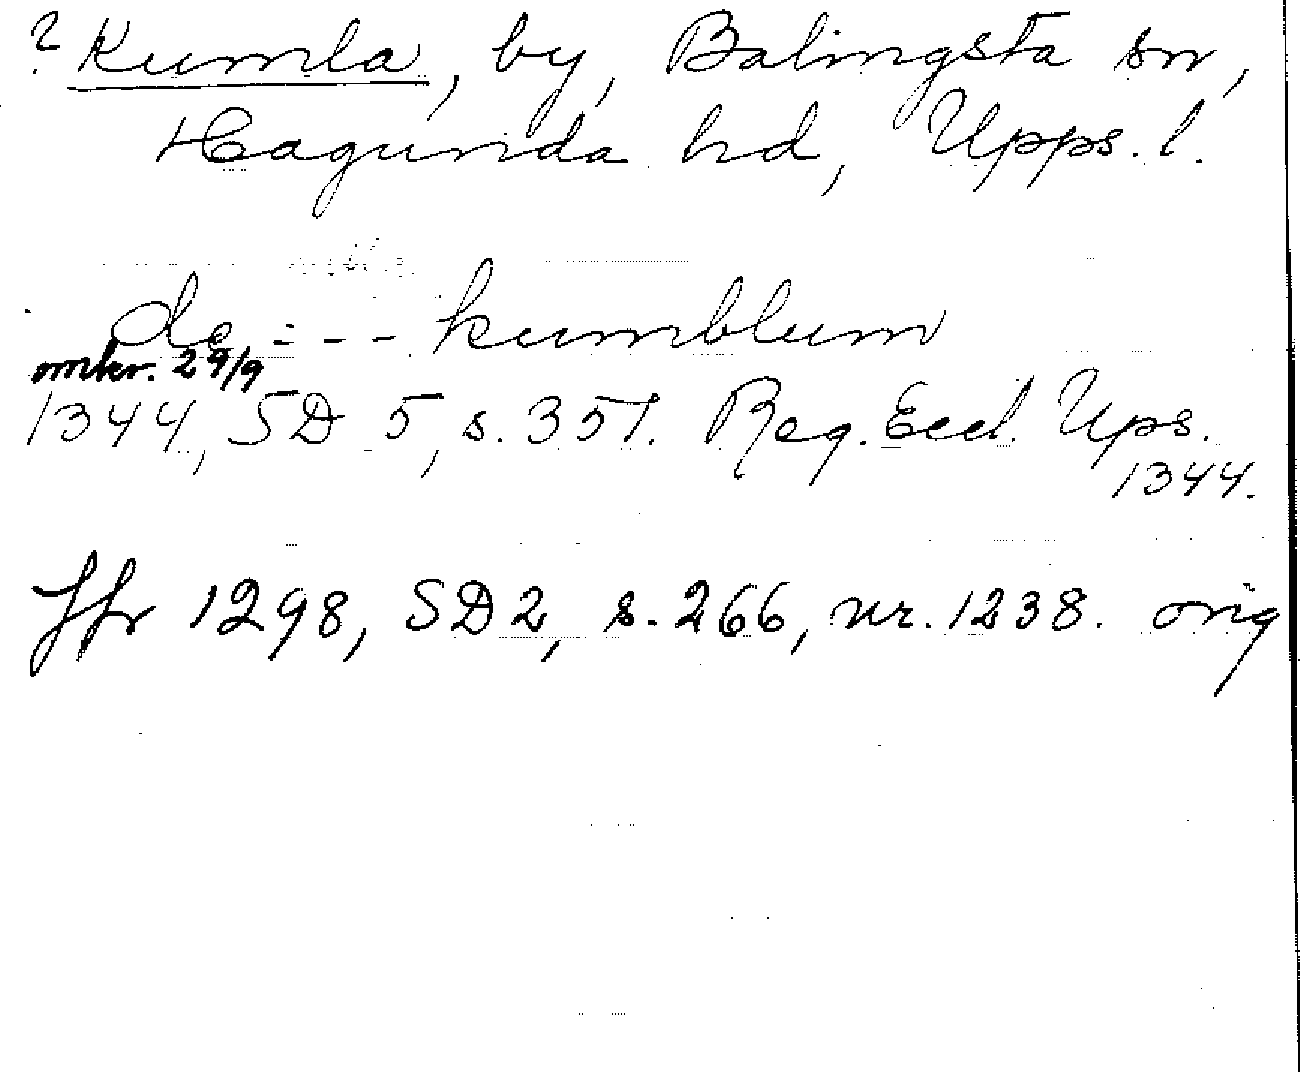 ? Kumla, by, Balingsta sn,
Hagunda hd, Upps. l.
de - - - kumblum
omkr. 29/9
1344, SD 5, s. 351. Reg. Eccl. Ups.
1344.
Jfr 1298, SD 2, s. 266, nr. 1238. orig